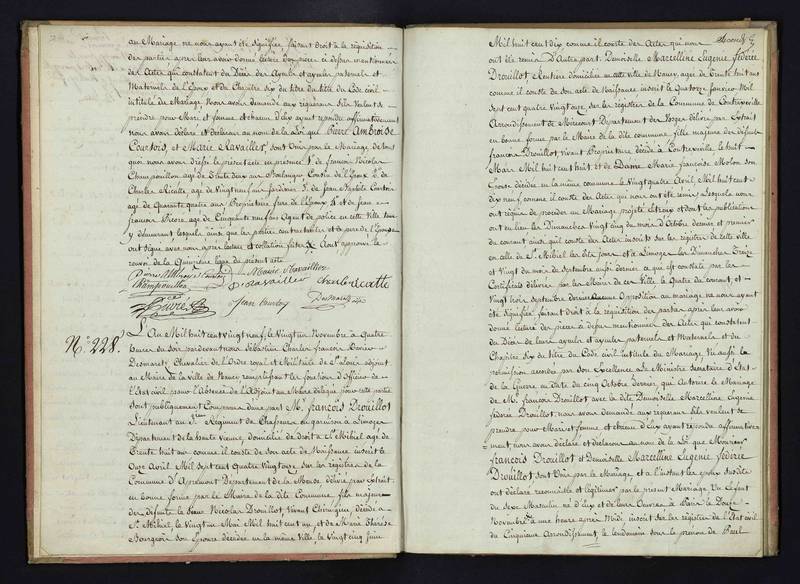 au Mariage ne nous ayant été signifiée, faisant droit à la réquisition
des parties après leur avoir donné lecture des pièces ci dessus mentionnées
des Actes qui constatent du Décès des Ayeuls et ayeules paternels et
Maternels de l'Epoux et du Chapitre six du titre du Code civil
intitulé du Mariage, Nous avons demandé aux requérans s'ils veulent se
prendre pour Mari et femme et chacun d'eux ayant répondu affirmativement
nous avons déclaré et déclarons au nom de la Loi que Pierre Ambroise
Courtois, et Marie Ravailler, sont Unis par le Mariage de tout
quoi nous avons dressé le présent acte en présence 1° de françois Nicolas
Champouillon agé de Trente deux ans Boulanger, Cousin de l'Epoux 2° de
Charles agé de Vingt neuf ans Jardinier 3° de Jean Baptiste
agé de Quarante quatre ans Propriétaire 4° et de Jean
françois agé de Cinquante neuf ans Agent de police en cette Ville tous
y demeurant lesquels ainsi que les parties contractantes et le père de l'Epouse
ont signé avec nous après lecture et collation faites
de la Quinzième ligne du présent acte
Marie Ravailler
Champouillon Ravailler
Jean
N° 228.
L'An Mil huit cent vingt neuf, le Vingt un Novembre à Quatre
heures du soir pardevant nous Sébastien Charles françois
Desmarets, Chevalier de l'Ordre royal et Militaire de St Louis adjoint
au Maire de la ville de Nancy remplissant les fonctions d'Officier de
l'Etat civil pour l'Absence de l'Adjoint au Maire délégué pour cette partie
Sont publiquement Comparus d'une part Mr françois Drouillot
Lieutenant au Régiment de Chasseurs en garnison à Limoges
Département de la haute Vienne, domicilié de Droit à St Mihiel agé de
Trente huit ans comme il conste de son acte de Naissance inscrit le
Onze Avril Mil sept cent Quatre Vingt onze sur les registres de la
Commune d'Apremont Département de la Meuse délivré par Extrait
en bonne forme par le Maire de la dite Commune, fils majeur
des défunts le Sieur Nicolas Drouillot, Vivant Chirurgien, décédé à
St Mihiel, le Vingt un Mai Mil huit cent un, et de Marie Thérèse
Bourgeois son Epouse décédée en la même Ville, le Vingt cinq Juin
Mil huit cent dix comme il conste des Actes qui nous
ont été remis D'autre part Demoiselle Marcelline Eugénie fédérée
Drouillot, Rentière domiciliée en cette ville de Nancy, agée de Trente huit ans
comme il conste de son acte de Naissance inscrit le Quatorze Janvier Mil
sept cent quatre Vingt onze, sur les registres de la Commune de Contrexéville
Arrondissement de Mirecourt Département des Vosges délivré par Extrait
en bonne forme par le Maire de la dite commune, fille majeure des défunts
françois Drouillot, vivant Propriétaire décédé à Contrexéville le huit
Mars Mil huit cent huit, et de Dame Marie françoise son
Epouse décédée en la même commune le Vingt quatre Avril Mil huit cent
dix neuf, comme il conste des Actes qui nous ont été remis, Lesquels nous
ont requis de procéder au Mariage projetté entr'eux et dont les publications
ont eu lieu les Dimanches Vingt cinq du mois d'Octobre dernier et premier
du courant ainsi qu'il conste des Actes inscrits sur les registres de cette ville
en celle de St Mihiel les dits jours et à Limoges les Dimanches Treize
et Vingt du mois de Septembre aussi dernier ce qui est constaté par les
Certificats délivrés par les Maires de ces Villes le Quatre du courant, et
Vingt trois Septembre dernier Aucune Opposition au mariage ne nous ayant
été signifiée faisant droit à la réquisition des parties après leur avoir
donné lecture des pièces ci dessus mentionnées des Actes qui constatent
du Décès de leurs ayeuls et ayeules paternels et Maternels et du
Chapitre six du titre du Code Civil intitulé du Mariage, Vu aussi la
permission accordée par son Excellence Le Ministre Secrétaire d'Etat
de la Guerre en date du cinq Octobre dernier, qui Autorise le Mariage
de Mr françois Drouillot avec la dite Demoiselle Marcelline Eugénie
fédérée Drouillot, nous avons demandé aux requérans s'ils veulent se
prendre pour Mari et femme et chacun d'eux ayant répondu affirmative
-ment nous avons déclaré et déclarons au nom de la Loi que Monsieur
françois Drouillot et Demoiselle Marcelline Eugénie fédérée
Drouillot sont Unis par le Mariage, et à l'instant les époux susdits
ont déclaré reconnaître et légitimer par le présent Mariage Un Enfant
du Sexe Masculin né d'eux et de leurs Oeuvres à Paris le Douze
Novembre à une heure après Midi inscrit sur les registres de l'Etat civil
du Cinquième Arrondissement, le lendemain sous le prénom de Paul